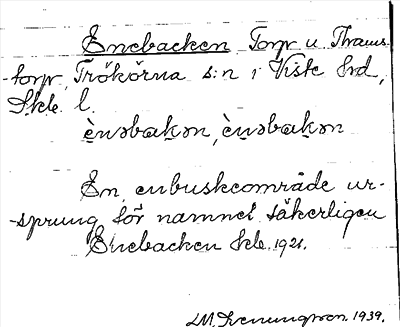 Enebacken Torp u. Thams-
torp, Trökörna s:n i Viste hrd,
Skbl. l.
è̀nəbakən, è̀nəbakən
En enbuskeområde ur-
sprung för namnet säkerligen
Enebacken Skbl. 1921.
1939.